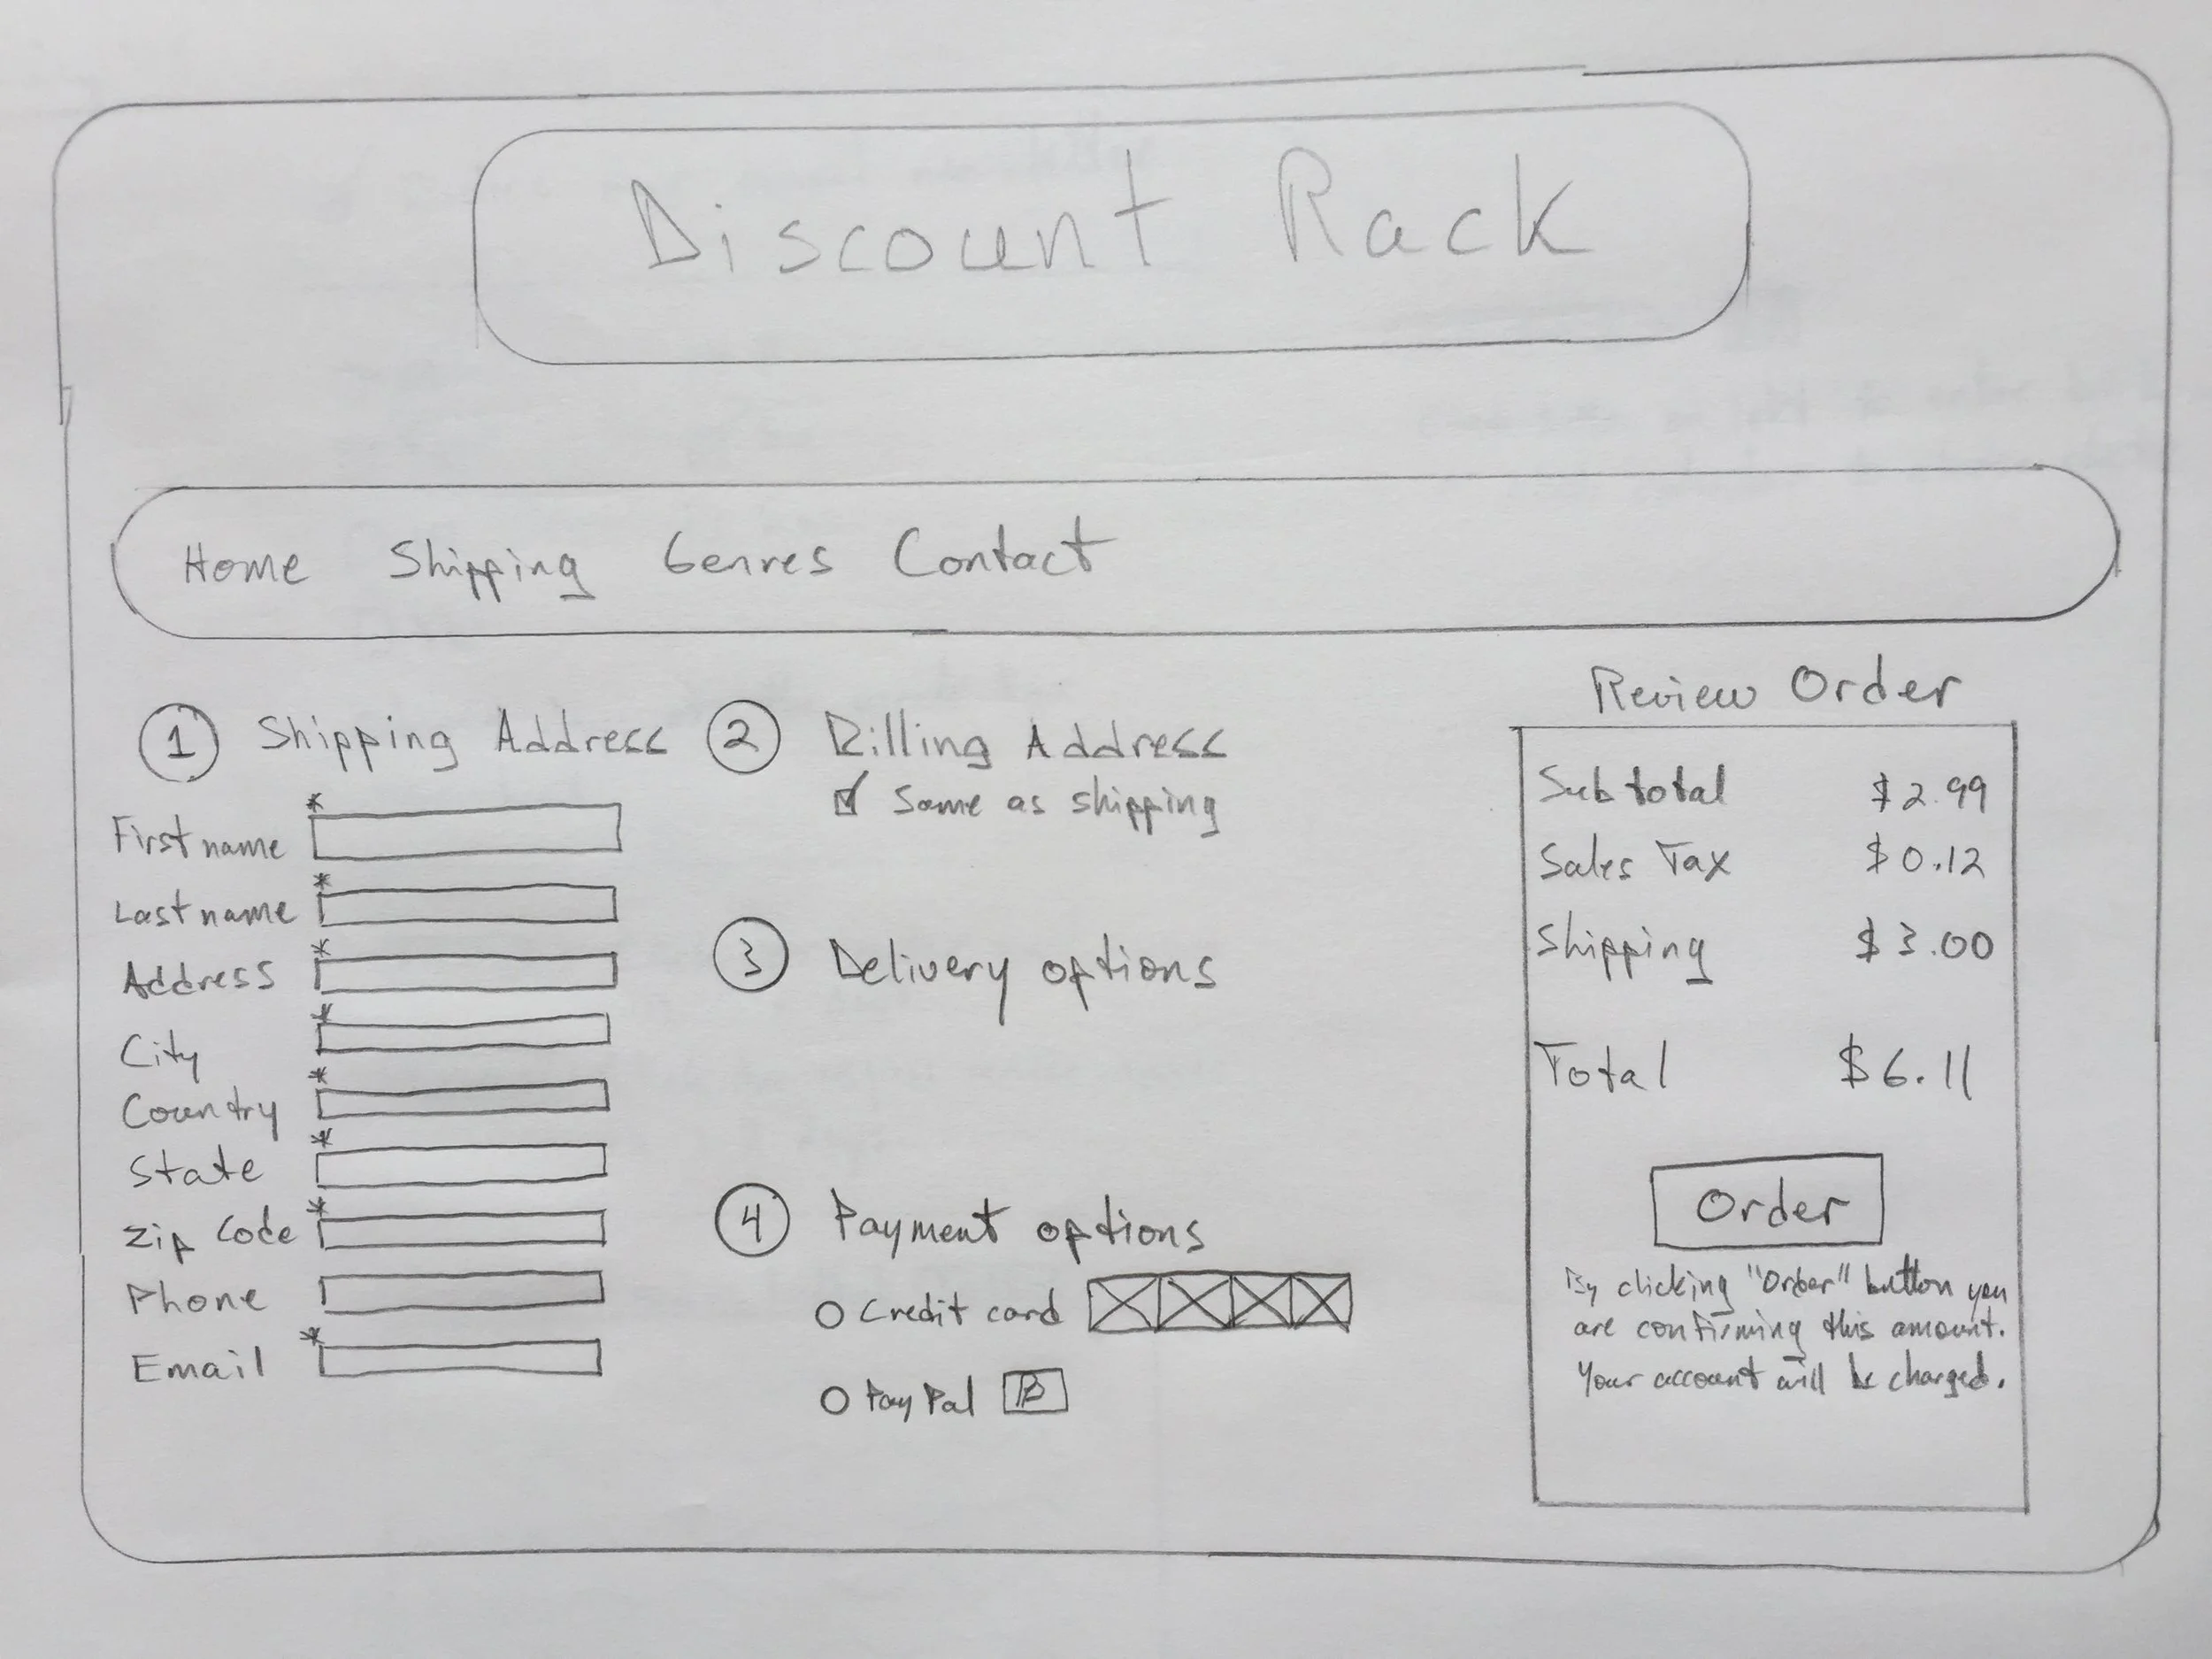 Discount Rack
Home Shipping Genres Contact
1 Shipping Address
* First name
* Last name
* Address
* City
* Country
* State
* Zip Code
Phone
* Email
2 Billing Address
Same as shipping
3 Delivery options
4 Payment options
Credit card
PayPal
Review Order
Subtotal $2.99
Sales Tax $0.12
Shipping $3.00
Total $6.11
Order
By clicking "Order" button you
are confirming this amount.
Your account will be charged.